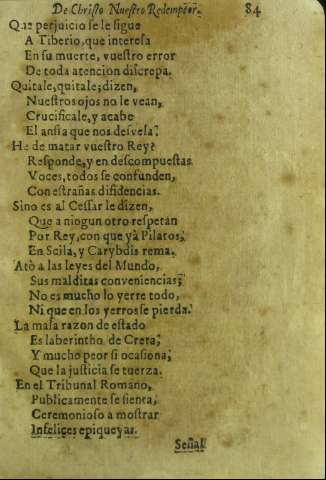 De Christo Nuestro Redemptor. 84
Que perjuicio se le sigue
A Tiberio, que interesa
En su muerte, vuestro error
De toda atencion discrepa.
Quitale, quitale; dizen,
Nuestros ojos no le vean,
Crucificale, y acabe
El ansia que nos desvela?
He de matar vuestro Rey?
Responde, y en descompuestas
Voces, todos se confunden,
Con estrañas disidencias.
Sino es al Cessar le dizen,
Que a ningun otro respetan
Por Rey, con que yà Pilatos,
En Scila, y Carybdis rema.
Atò a las leyes del Mundo,
Sus malditas conveniencias;
No es mucho lo yerre todo,
Ni que en los yerros se pierda.
La mala razon de estado
Es laberintho de Creta;
Y mucho peor si ocasiona,
Que la justicia se tuerza.
En el Tribunal Romano,
Publicamente se sienta,
Ceremonioso a mostrar
Infelices epiqueyas.
Señal